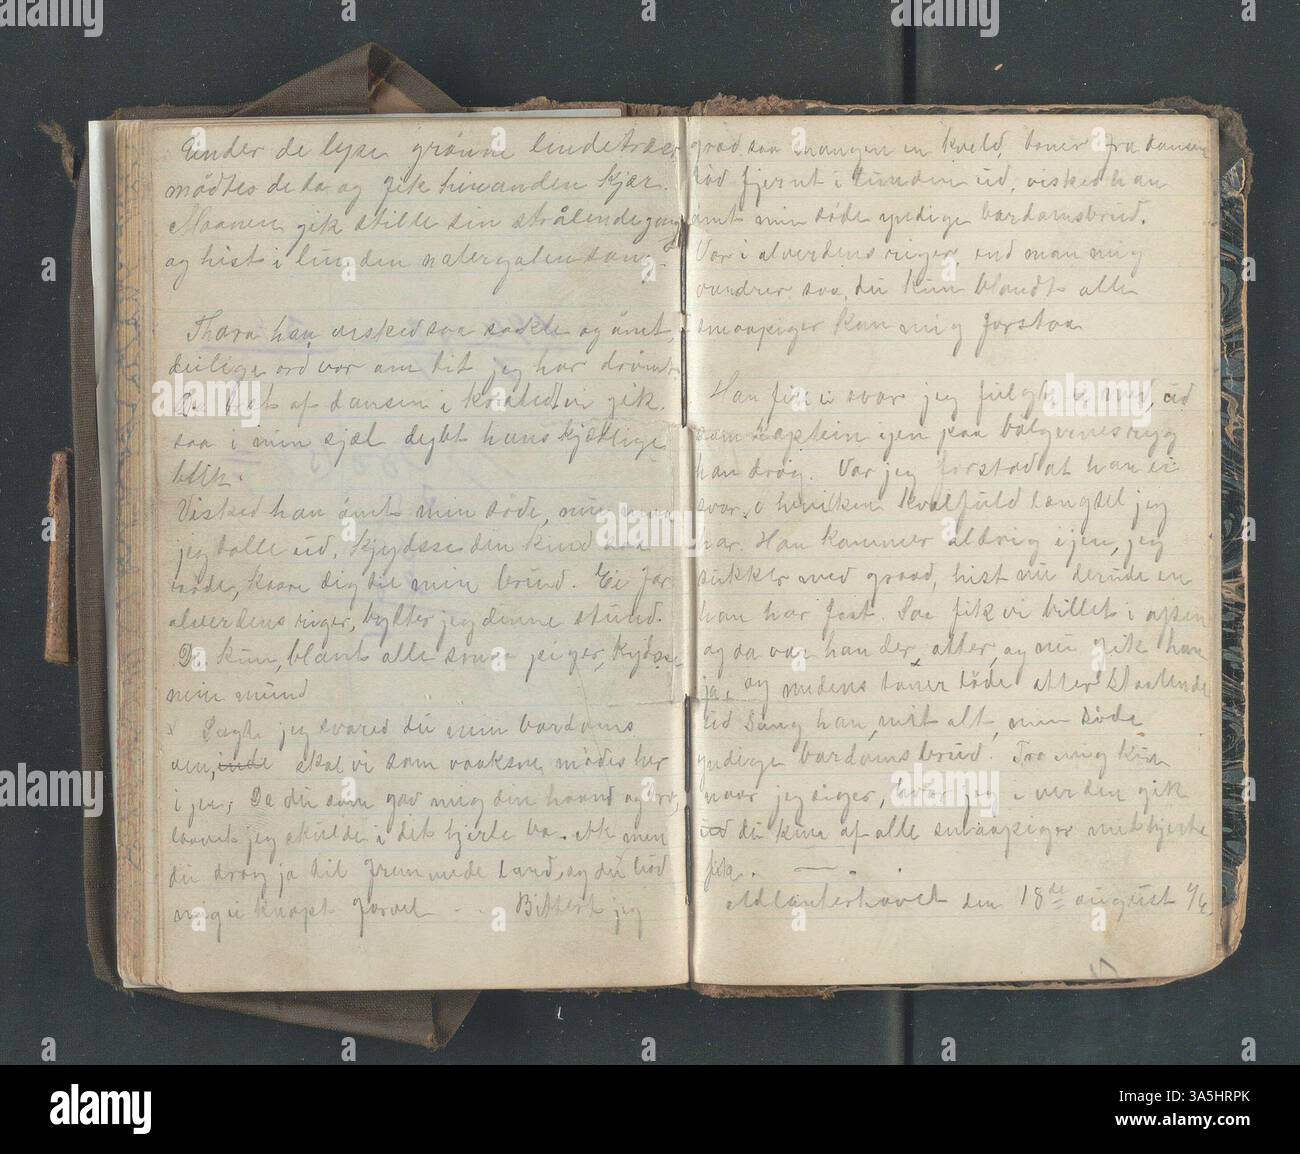 Under de lyse grønne lindetræer
mødtes de da og gik hinanden kjær.
Maanen gik stille sin strålende gang
og hist i lunden natergalen sang.
han visked saa sackte og ømt,
deilige ord var om dit jeg har drømt.
af dansen i gik.
saa i min sjæl dybt hans kjærlige
blik.
Visked han ømt min søde, min
jeg balle ud. Kjydsse den kind saa
røde, kaare dig til min brud. Ei for
alverdens riger, bytter jeg denne stund.
Du kun, blant alle smaa piger, Kydsse
min mund
Sagte jeg svared du min bardoms
ven, inde skal vi som vaaksne mødes her
i jen, Da du som gav mig din haand og
jeg i dit hjerte bo. men
du drog ja til fremmede Land, og du lød
mig i knapt farvel - . . Bittert jeg
græd saa mangen en kveld, toner fra dansen
lød fjernt i Lunden ud, visked han
ømt min søde yndige bardomsbrud.
Var i alverdens riger end man mig
vandrer saa, du kun blandt alle
smaapiger kan mig forstaa
Han fik ei svar jeg fulgte ei med, ud
som kaptein igjen paa bølgernes ryg
han drog. Var jeg forstod at han ei
svar. O hvilken kvalfuld længsel jeg
har. Han kommer aldrig igjen, jeg
sukker med graad, hist nu derude en
han har fæst. Saa fik vi billet i
og da var han der, atter, og nu gik han
ja, og medens toner løde atter
ud Sang han, mit alt, min søde
yndige bardomsbrud. Tro mig kun
naar jeg siger, hvor jeg i verden gik
du kun af alle smaapiger mit hjerte
fik. — .
Atlanterhavet den 18de august
a
alamy
Image ID: 2A5HRPK
www.alamy.com